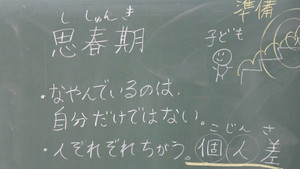 ししゅんき
思春期
準備
子ども
・なやんでいるのは、
自分だけではない。
こじんさ
・人ぞれぞれちがう。個人差